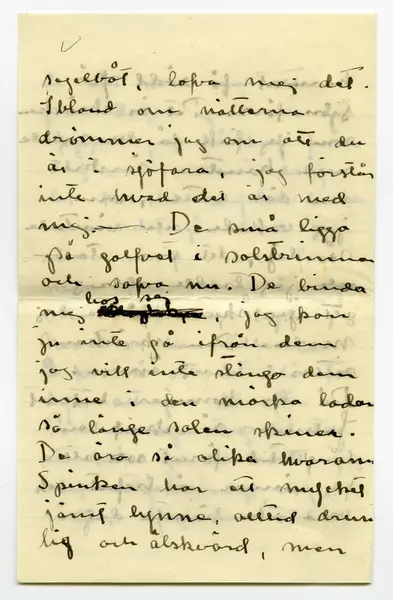 segelbåt, lofva mej det.
Ibland om nätterna
drömmer jag om att du
är i sjöfara, jag förstår
inte hvad det är med
mej. — De små ligga
på golfvet i solstrimman
och sofva nu. De binda
mej hos sej, jag kan
ju inte gå ifrån dem
jag vill inte stänga dem
inne i den mörka lådan
så länge solen skiner.
De äro så olika hvarann
Spinken har ett mycket
jämt lynne, alltid
lig och älskvärd, men